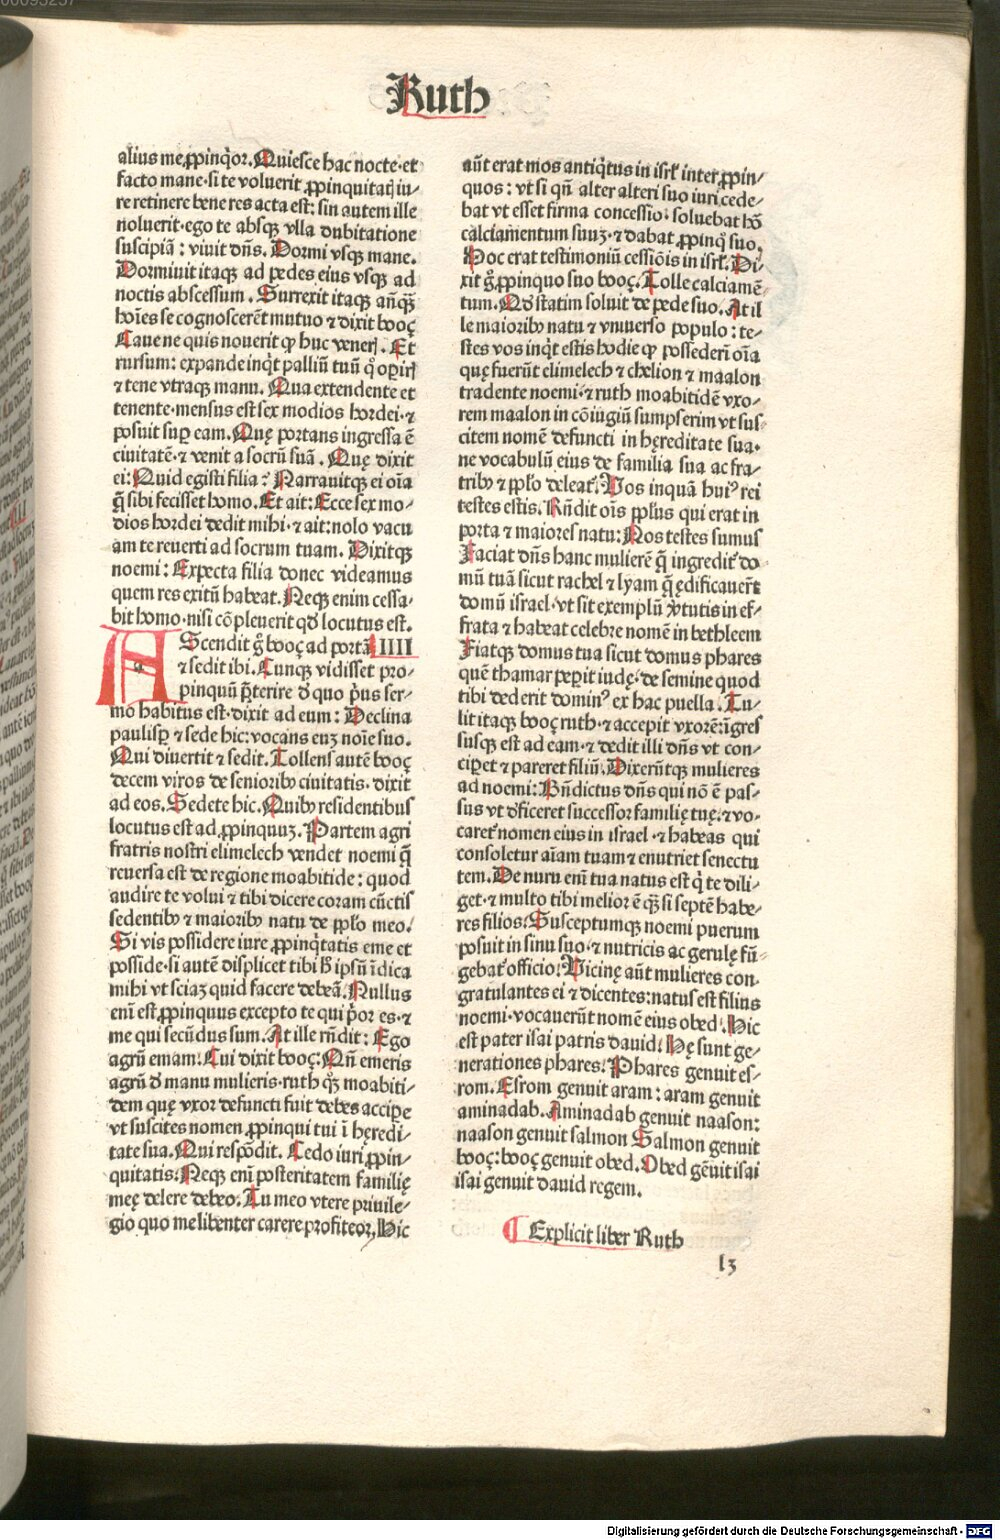 Ruth
alius me ꝓpinq̇or. Quiesce hac nocte· et
facto mane· si te voluerit ꝓpinquitatꝭ iu⸗
re retinere bene res acta est: sin autem ille
noluerit· ego te absqꝫ vlla dubitatione
suscipiā: viuit dn̄s. Dormi vsqꝫ mane.
Dormiuit itaqꝫ ad pedes eius vsqꝫ ad
noctis abscessum. Surrexit itaqꝫ an̄qꝫ
hoīes se cognoscerēt mutuo ⁊ dixit booç
Caue ne quis nouerit ꝙ huc venerꝭ. Et
rursum: expande inq̇t palliū tuū q̊ operirꝭ
⁊ tene vtraqꝫ manu. Qua extendente et
tenente· mensus est sex modios hordei· ⁊
posuit suꝑ eam. Quę portans ingressa ē
ciuitatē· ⁊ venit a socrū suā. Quę dixit
ei: Quid egisti filia? Narrauitqꝫ ei oīa
q̄ sibi fecisset homo. Et ait: Ecce sex mo⸗
dios hordei dedit mihi· ⁊ ait: nolo vacu
am te reuerti ad socrum tuam. Dixitqꝫ
noemi: Expecta filia donec videamus
quem res exitū habeat. Neqꝫ enim cessa⸗
bit homo· nisi cōpleuerit qd̓ locutus est.
AScendit g̊ booç ad portā IIII
⁊ sedit ibi. Cunqꝫ vidisset pro⸗
pinquū p̄terire d̓ quo p̓us ser⸗
mo habitus est· dixit ad eum: Declina
paulisꝑ ⁊ sede hic: vocans euꝫ noīe suo.
Qui diuertit ⁊ sedit. Tollens autē booç
decem viros de senioribꝰ ciuitatis· dixit
ad eos. Sedete hic. Quibꝰ residentibus
locutus est ad ꝓpinquuꝫ. Partem agri
fratris nostri elimelech vendet noemi q̄
reuersa est de regione moabitide: quod
audire te volui ⁊ tibi dicere coram cūctis
sedentibꝰ ⁊ maioribꝰ natu de pplo meo.
Si vis possidere iure ꝓpinq̇tatis eme et
posside· si autē displicet tibi h̓ ipsū īdica
mihi vt sciaꝫ quid facere debeā. Nullus
enī est ꝓpinquus excepto te qui p̓or es· ⁊
me qui secūdus sum. At ille rn̄dit: Ego
agrū emam. Cui dixit booç: Qn̄ emeris
agrū d̓ manu mulieris· ruth qꝫ moabiti⸗
dem quę vxor defuncti fuit debes accipe
vt suscites nomen ꝓpinqui tui ī hęredi⸗
tate sua. Qui respōdit. Cedo iuri ꝓpin⸗
quitatis. Neqꝫ enī posteritatem familię
meę delere debeo. Tu meo vtere priuile⸗
gio quo me libenter carere profiteor. Hic
aūt erat mos antiq̇tus in isrł inter ꝓpin⸗
quos: vt si qn̄ alter alteri suo iuri cede⸗
bat vt esset firma concessio· soluebat hō
calciamentum suuꝫ· ⁊ dabat ꝓpinq̊ suo.
Hoc erat testimoniū cessiōis in isrł. Di⸗
xit g̊ ꝓpinquo suo booç. Tolle calciamē⸗
tum. Qd̓ statim soluit de pede suo. At il
le maioribꝰ natu ⁊ vniuerso populo: te⸗
stes vos inq̇t estis hodie ꝙ possederī oīa
quę fuerūt elimelech ⁊ chelion ⁊ maalon
tradente noemi· ⁊ ruth moabitidē vxo⸗
rem maalon in cōiugiū sumpserim vt sus⸗
citem nomē defuncti in hęreditate sua·
ne vocabulū eius de familia sua ac fra⸗
tribꝰ ⁊ pplo deleat᷑. Vos inquā huiꝰ rei
testes estis. Rn̄dit oīs pplus qui erat in
porta ⁊ maiores natu: Nos testes sumus
Faciat dn̄s hanc mulierē q̄ ingredit᷑ do⸗
mū tuā sicut rachel ⁊ lyam q̄ ędificauerūt
domū israel· vt sit exemplū v̓tutis in ef⸗
frata ⁊ habeat celebre nomē in bethleem
Fiatqꝫ domus tua sicut domus phares
quē thamar peꝑit iudę· de semine quod
tibi dederit dominꝰ ex hac puella. Tu⸗
lit itaqꝫ booç ruth· ⁊ accepit vxorē: īgres
susqꝫ est ad eam· ⁊ dedit illi dn̄s vt con⸗
ciꝑet ⁊ pareret filiū. Dixerūtqꝫ mulieres
ad noemi: Bn̄dictus dn̄s qui nō ē pas⸗
sus vt d̓ficeret successor familię tuę· ⁊ vo⸗
caret᷑ nomen eius in israel· ⁊ habeas qui
consoletur aīam tuam ⁊ enutriet senectu
tem. De nuru enī tua natus est q̇ te dili⸗
get· ⁊ multo tibi melior ē qꝫ si septē habe⸗
res filios. Susceptumqꝫ noemi puerum
posuit in sinu suo· ⁊ nutricis ac gerulę fū⸗
gebat᷑ officio. Vicinę aūt mulieres con⸗
gratulantes ei ⁊ dicentes: natus est filius
noemi· vocauerūt nomē eius obed. Hic
est pater isai patris dauid. Hę sunt ge⸗
nerationes phares. Phares genuit es⸗
rom. Esrom genuit aram: aram genuit
aminadab. Aminadab genuit naason:
naason genuit salmon Salmon genuit
booç: booç genuit obed. Obed gēuit isai
isai genuit dauid regem.
¶ Explicit liber Ruth
l3
Digitalisierung gefördert durch die Deutsche Forschungsgemeinschaft - DFG